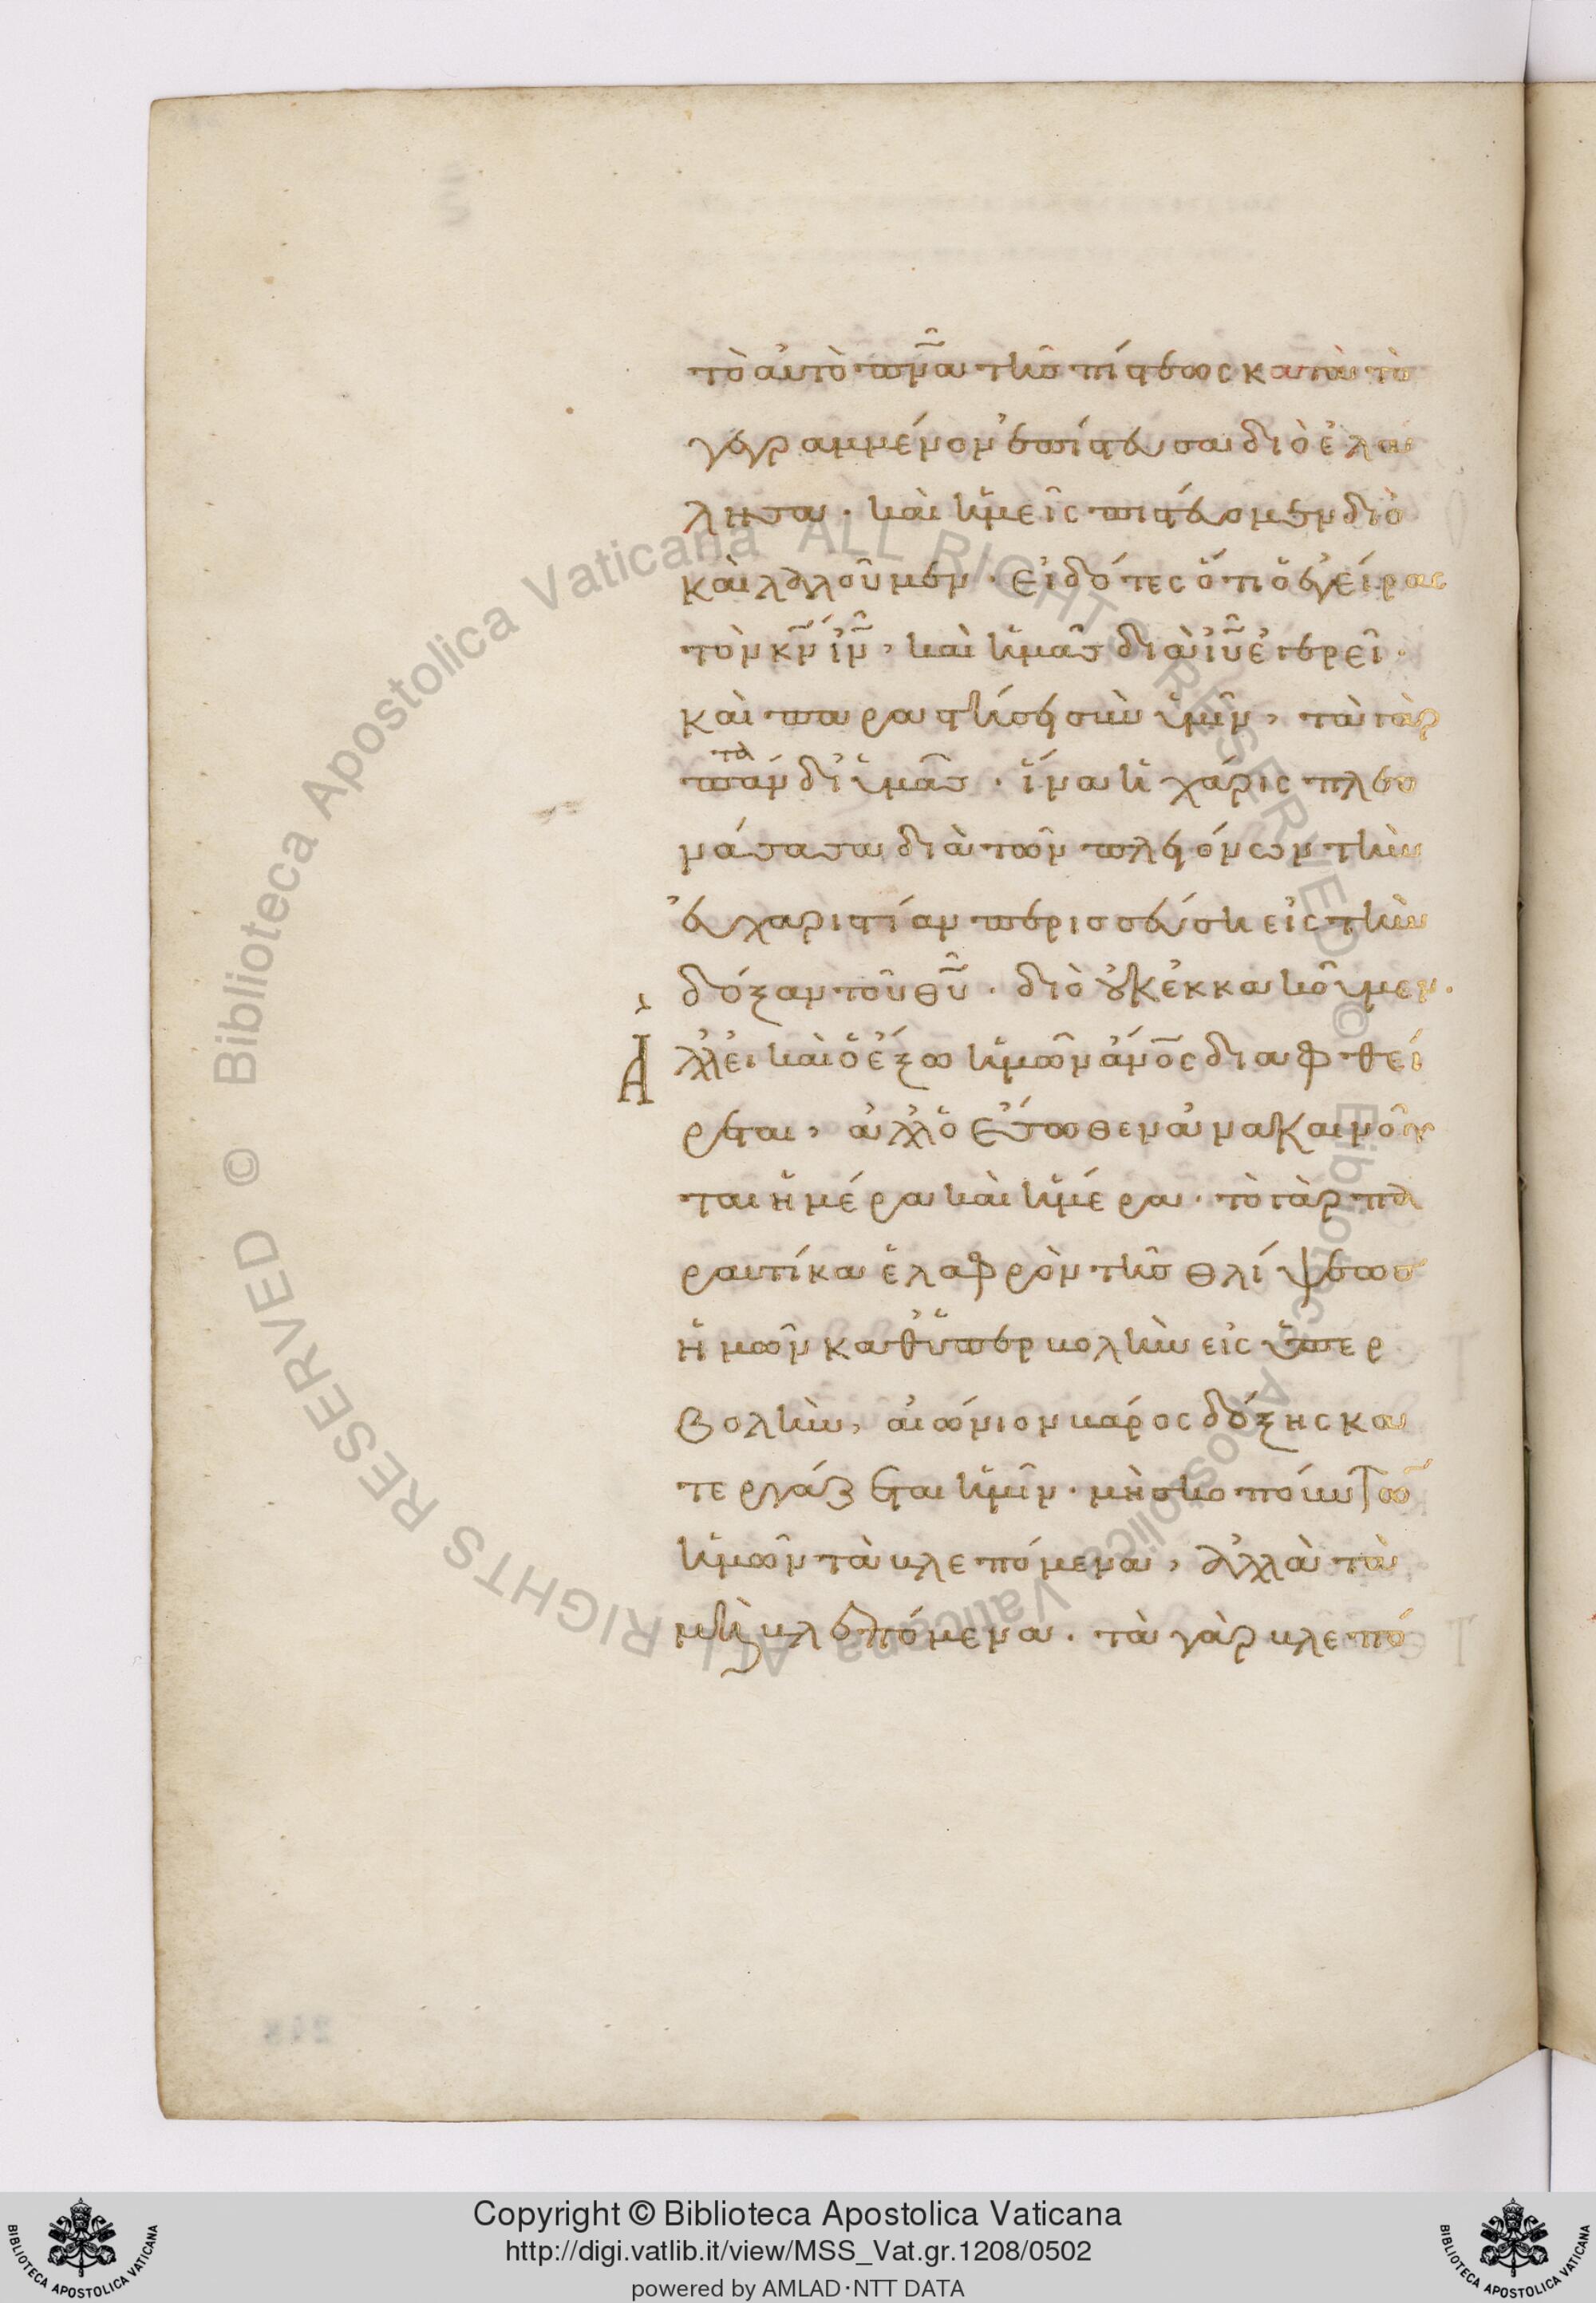 τὸ αὐτὸ πν̅α̅ τῆς πίστεως κατὰ τὸ
γεγραμμένον ἐπίστευσα διὸ ἐλά
λησα · καὶ ἡμεῖς πιστεύομεν διὸ
καὶ λαλοῦμεν · εἰδότες ὅτι ὁ ἐγείρας
τὸν κ̅ν̅ ι̅ν̅, καὶ ἡμᾶς διὰ ι̅υ̅ ἐγερεῖ ·
καὶ παραστήσει σὺν ὑμῖν, τὰ γὰρ
πάντα δι' ὑμᾶς · ἵνα ἡ χάρις πλεο
νάσασα διὰ τῶν πλειόνων τὴν
εὐχαριστίαν περισσεύσῃ εἰς τὴν
δόξαν τοῦ θ̅υ̅ · διὸ οὐκ ἐκκακοῦμεν ·
Ἀλλ' εἰ καὶ ὁ ἔξω ἡμῶν ἄν̅ο̅ς̅ διαφθεί
ρεται, ἀλλ' ὁ ἔσωθεν ἀνακαινοῦ
ται ἡμέρα καὶ ἡμέρα · τὸ γὰρ πα
ραυτίκα ἐλαφρὸν τῆς θλίψεως
ἡμῶν καθ' ὑπερβολὴν εἰς ὑπερ
βολὴν, αἰώνιον βάρος δόξης κα
τεργάζεται ἡμῖν · μὴ σκοπούντων
ἡμῶν τὰ βλεπόμενα, ἀλλὰ τὰ
μὴ βλεπόμενα · τὰ γὰρ βλεπό
© Biblioteca Apostolica Vaticana ALL RIGHTS RESERVED © Biblioteca Apostolica Vaticana ALL RIGHTS RESERVED
Copyright © Biblioteca Apostolica Vaticana
http://digi.vatlib.it/view/MSS_Vat.gr.1208/0502
powered by AMLAD·NTT DATA
BIBLIOTECA APOSTOLICA VATICANA
BIBLIOTECA APOSTOLICA VATICANA